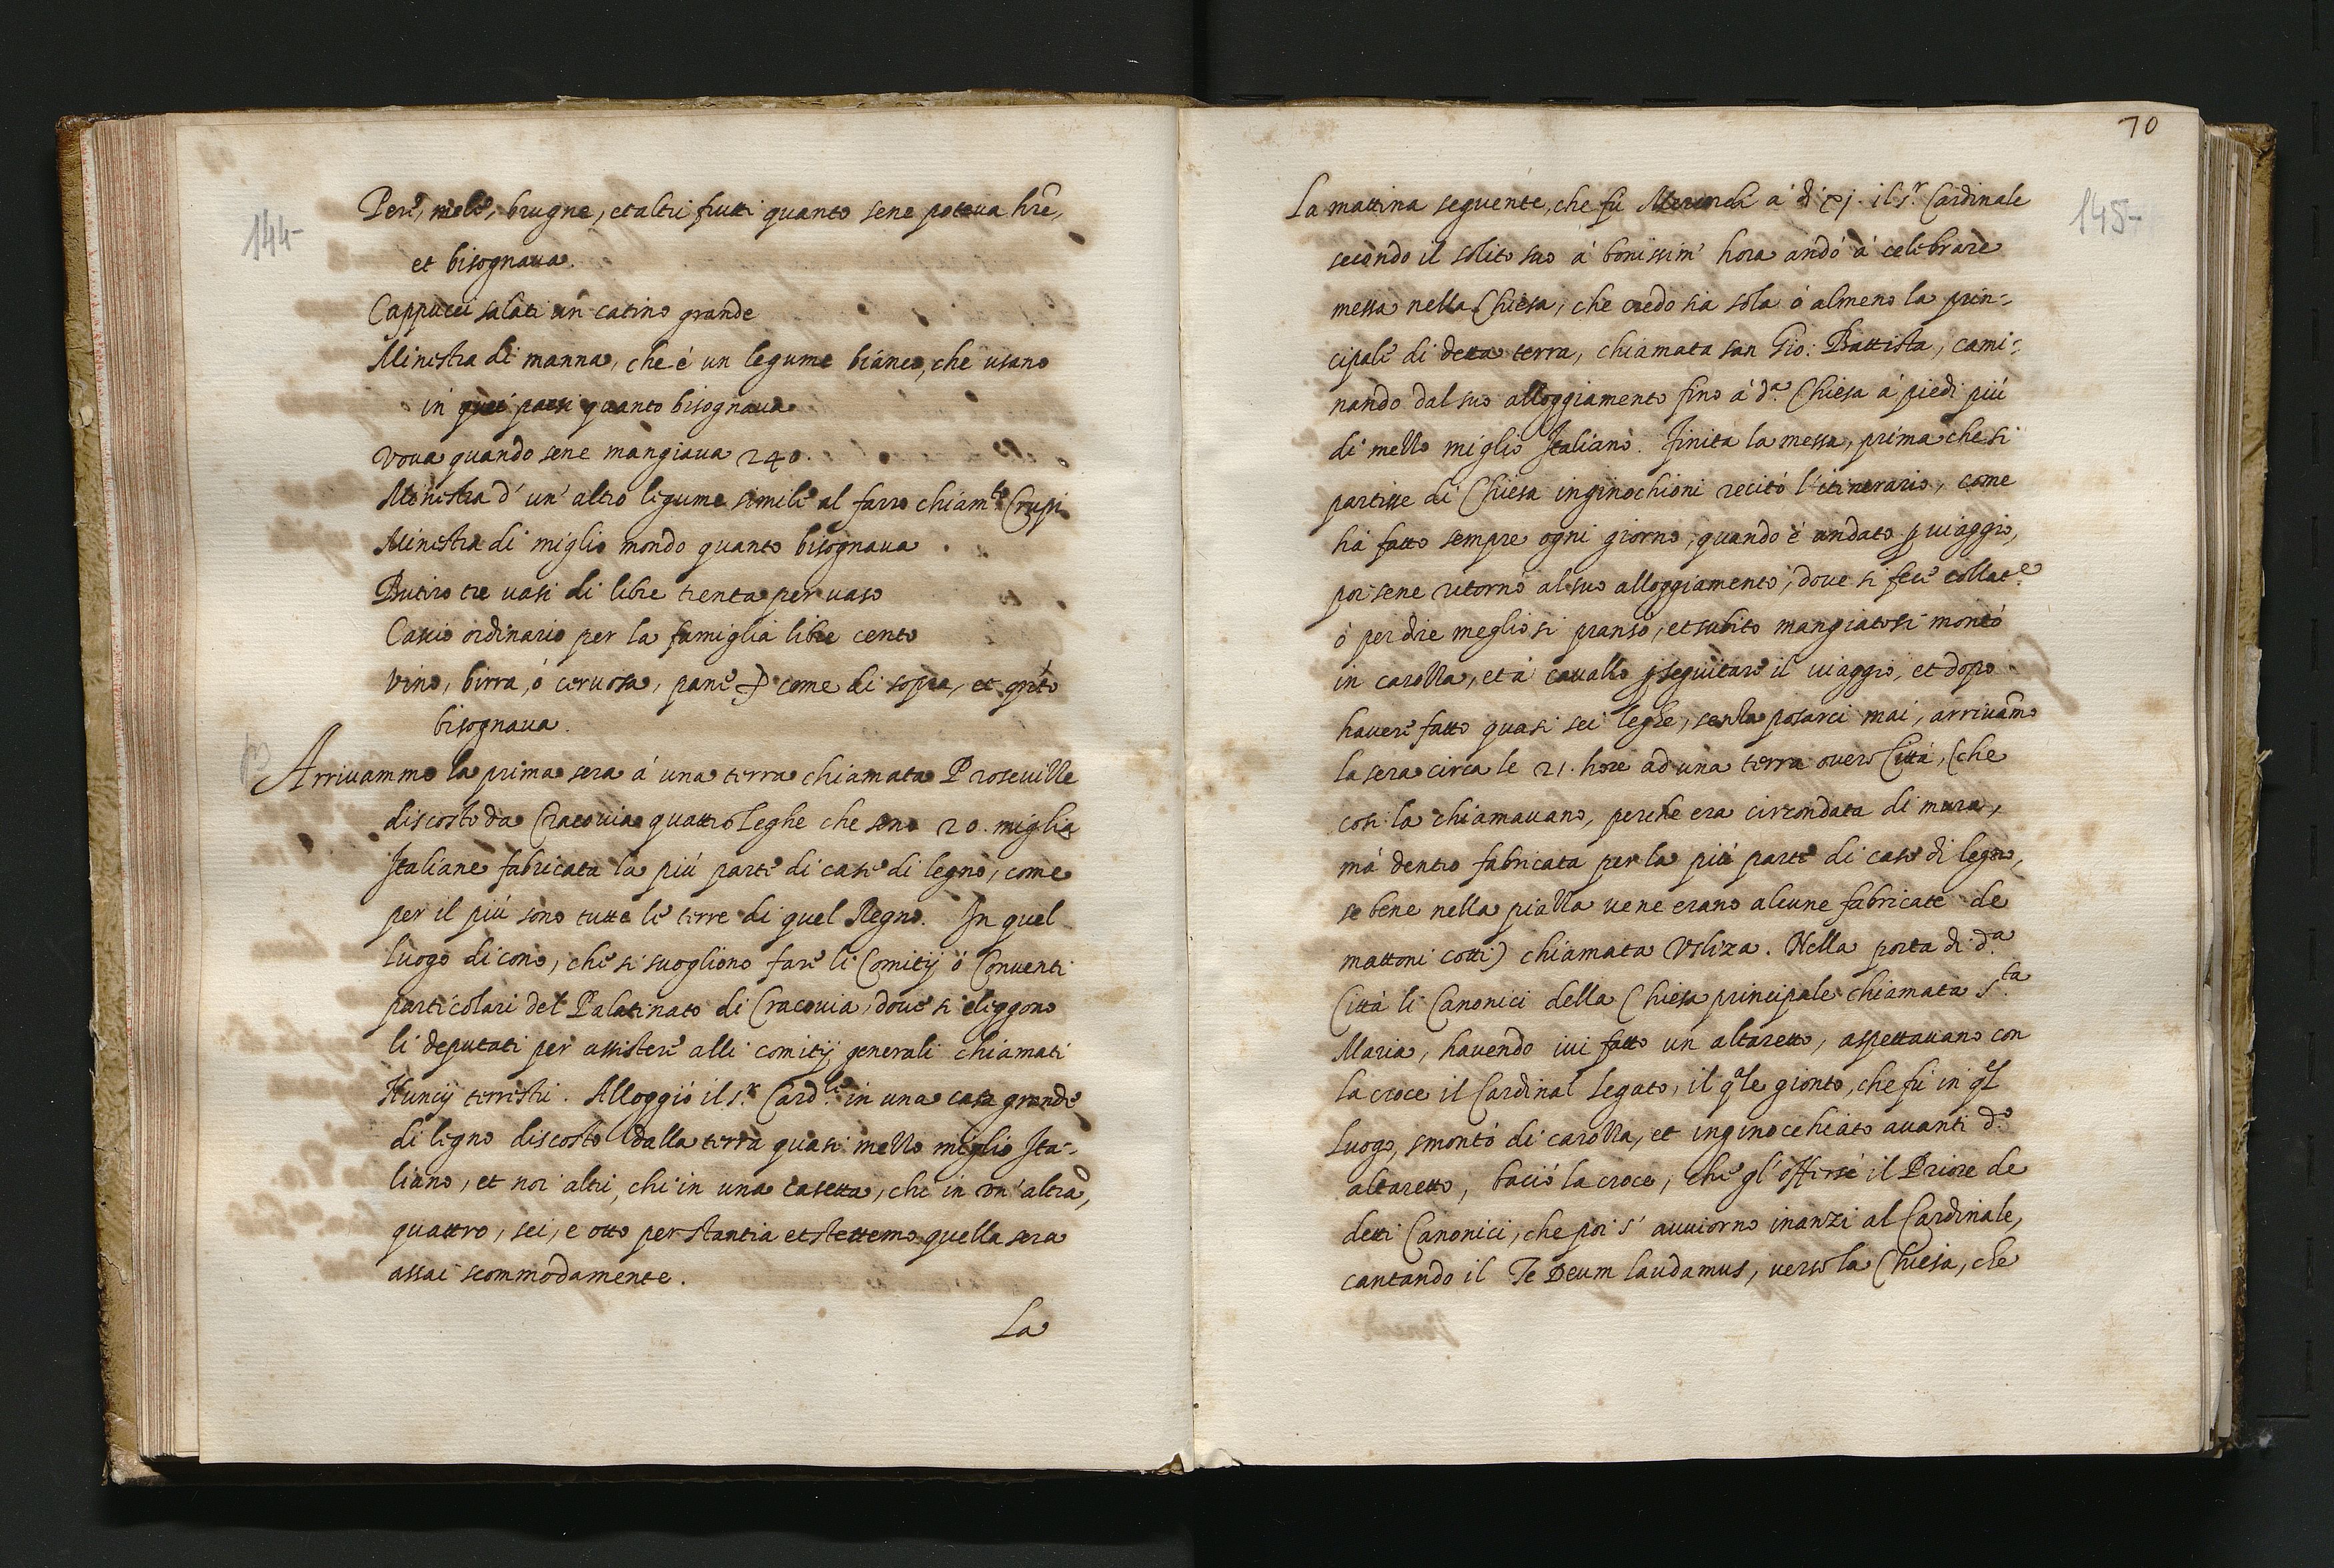 144-
Pere, mele, brugne, et altri frutti quanto sene poteua hre,
et bisognaua.
Cappucci salati un catino grande
Minestra di manna, che è un legume bianco, che usano
in quei paesi quanto bisognaua
Voua quando sene mangiaua 240.
Minestra d' un' altro legume simile al farro chiam.to Crupi
Minestra di miglio mondo quanto bisognaua
Butiro tre uasi di libre trenta per uaso
Cascio ordinario per la famiglia libre cento
Vino, birra, ò ceruosa, pane come di sopra, et qnto
bisognaua.
Arriuammo la prima sera á una terra chiamata Proseuizze
discosto da Cracouia quattro leghe che sono 20. miglia
Italiane fabricata la più parte di case di legno, come
per il più sono tutte le terre di quel Regno. In quel
luogo dicono, che si sogliono fare li Comitij ò Conuenti
particolari del Palatinato di Cracouia, doue si eleggono
li deputati per assistere alli comitij generali chiamati
Nuncij terrestri. Alloggiò il s.r Card.le in una casa grande
di legno discosto dalla terra quasi mezzo miglio Ita-
liano, et noi altri, chi in una casetta, chi in un' altra,
quattro, sei, e otto per stantia et stettemo quella sera
assai scommodamente.
La
70
145-
La mattina seguente, che fù á dì il s.r Cardinale
secondo il solito suo á bonissim' hora andò á celebrare
messa nella Chiesa, che credo sia sola ò almeno la prin-
cipale di detta terra, chiamata san Gio: Battista, cami-
nando dal suo alloggiamento fino á d.a Chiesa á piedi più
di mezzo miglio Italiano. Finita la messa, prima che si
partisse di Chiesa inginochioni recitò l'itinerario, come
hà fatto sempre ogni giorno, quando è andato p uiaggio,
poi sene ritornò al suo alloggiamento, doue si fece collat.e
ò per dire meglio si pransò, et subito mangiato si montò
in carozza, et á cauallo p seguitare il uiaggio, et dopo
hauere fatto quasi sei leghe, senza posarci mai, arriuamo
la sera circa le 21. hore ad una terra ouero Città, (che
cosi la chiamauano, perche era circondata di mura,
mà dentro fabricata per la più parte di case di legno,
se bene nella piazza uene erano alcune fabricate de
mattoni cotti) chiamata Vsliza. Nella porta di d.a
Città li Canonici della Chiesa principale chiamata S.ta
Maria, hauendo iui fatto un altaretto, aspettauano con
la croce il Cardinal legato, il qle gionto, che fù in ql
luogo, smontò di carozza, et inginocchiato auanti d.o
altaretto, baciò la croce, che gl'offerse il Priore de
detti Canonici, che poi s' auuiorno inanzi al Cardinale,
cantando il Te Deum laudamus, uerso la Chiesa, che